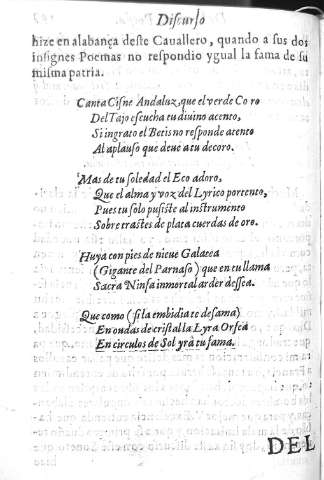 Discurso
hize en alabança deste Cavallero, quando a sus dos
insignes Poemas no respondio ygual la fama de su
misma patria.
Canta Cisne Andaluz, que el verde Coro
Del Tajo escucha tu divino acento,
Si ingrato el Betis no responde atento
Al aplauso que deve a tu decoro.
Mas de tu soledad el Eco adoro,
Que el alma y voz del Lyrico portento,
Pues tu solo pusiste al instrumento
Sobre trastes de plata cuerdas de oro.
Huya con pies de nieve Galatea
(Gigante del Parnaso) que en tu llama
Sacra Ninfa inmortal arder dessea.
Que como (si la embidia te desama)
En ondas de cristal la Lyra Orfea
En circulos de Sol yrà tu fama.
DEL